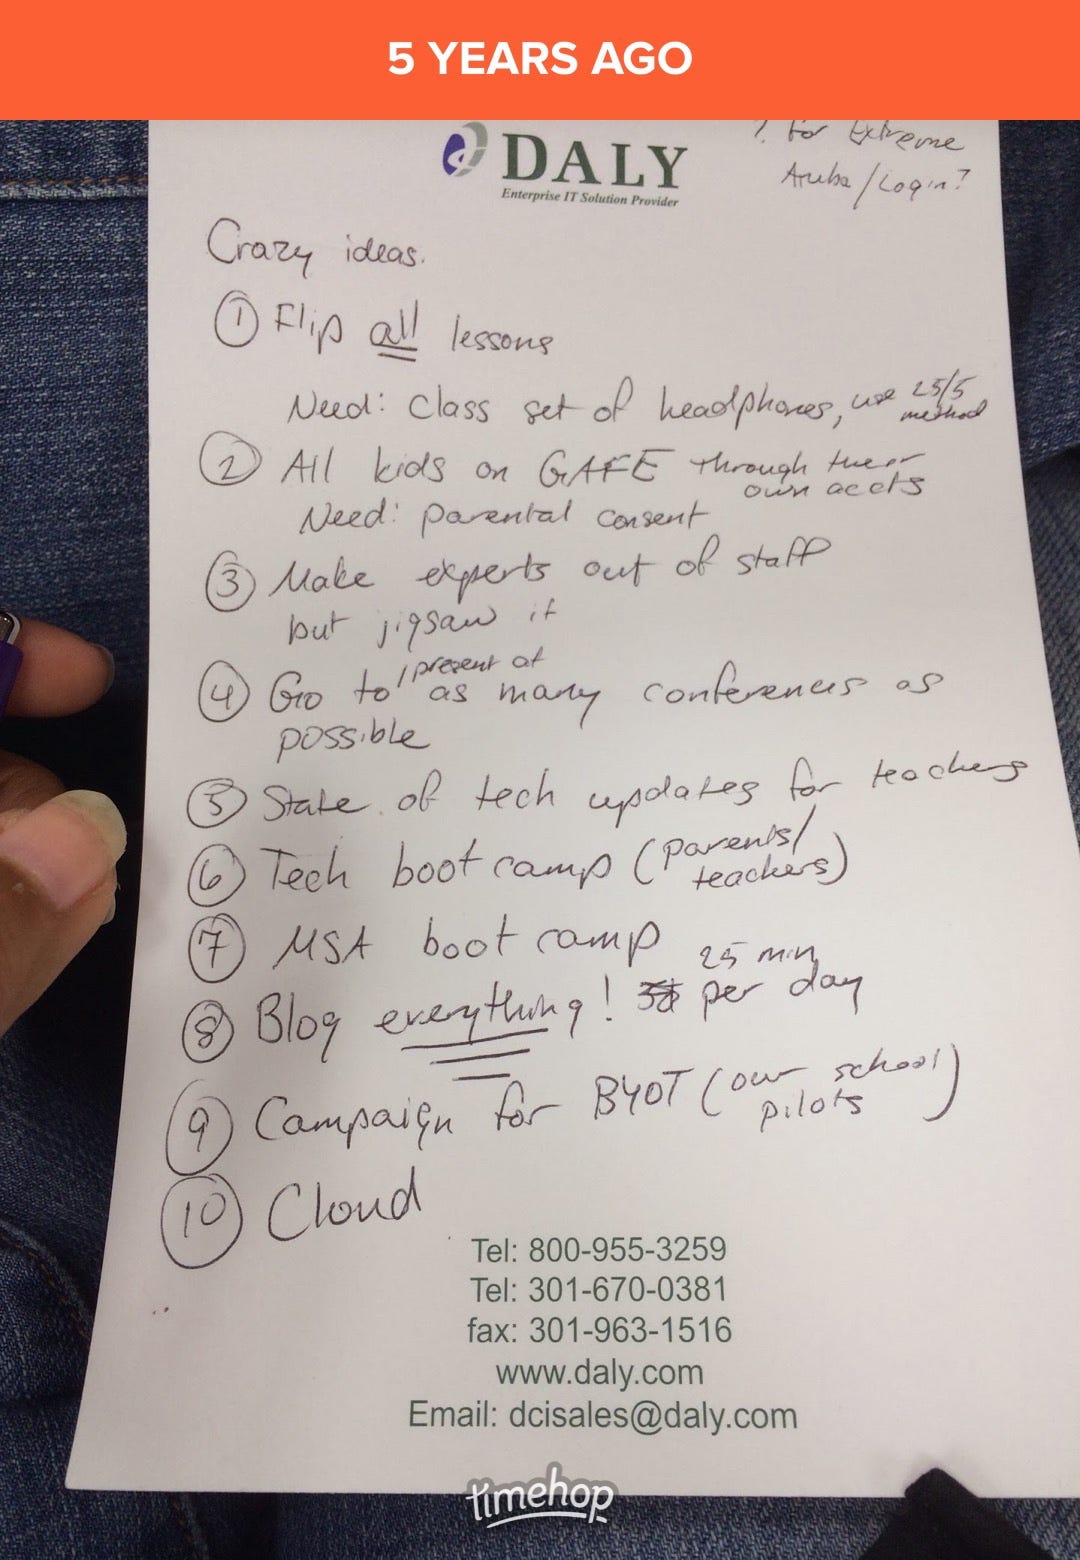 5 YEARS AGO
? for Extreme
Aruba/Login?
DALY
Enterprise IT Solution Provider
Crazy ideas.
① Flip all lessons
Need: Class set of headphones, use 25/5 method
② All kids on GAFE through their own accts
Need: parental consent
③ Make experts out of staff
but jigsaw it
④ Go to/present at as many conferences as
possible
⑤ State of tech updates for teachers
⑥ Tech boot camp (parents/teachers)
⑦ MSA boot camp
⑧ Blog everything! 25 min per day
⑨ Campaign for BYOT (our school pilots)
⑩ Cloud
Tel: 800-955-3259
Tel: 301-670-0381
fax: 301-963-1516
www.daly.com
Email: dcisales@daly.com
timehop